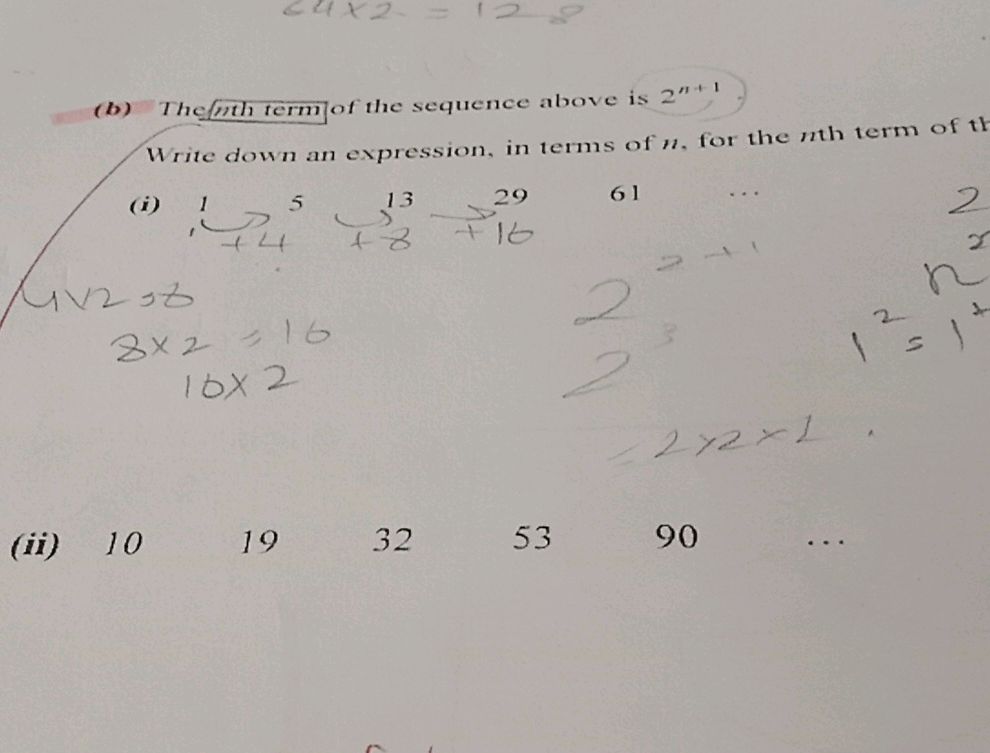 64 x 2 = 128
(b) The nth term of the sequence above is 2ⁿ⁺¹.
Write down an expression, in terms of n, for the nth term of th
(i) 1 5 13 29 61 ...
+4 +8 +16
2
4 x 2 = 8
8 x 2 = 16
16 x 2
2²⁺¹
2³
= 2 x 2 x 2 .
n²
1² = 1
(ii) 10 19 32 53 90 ...